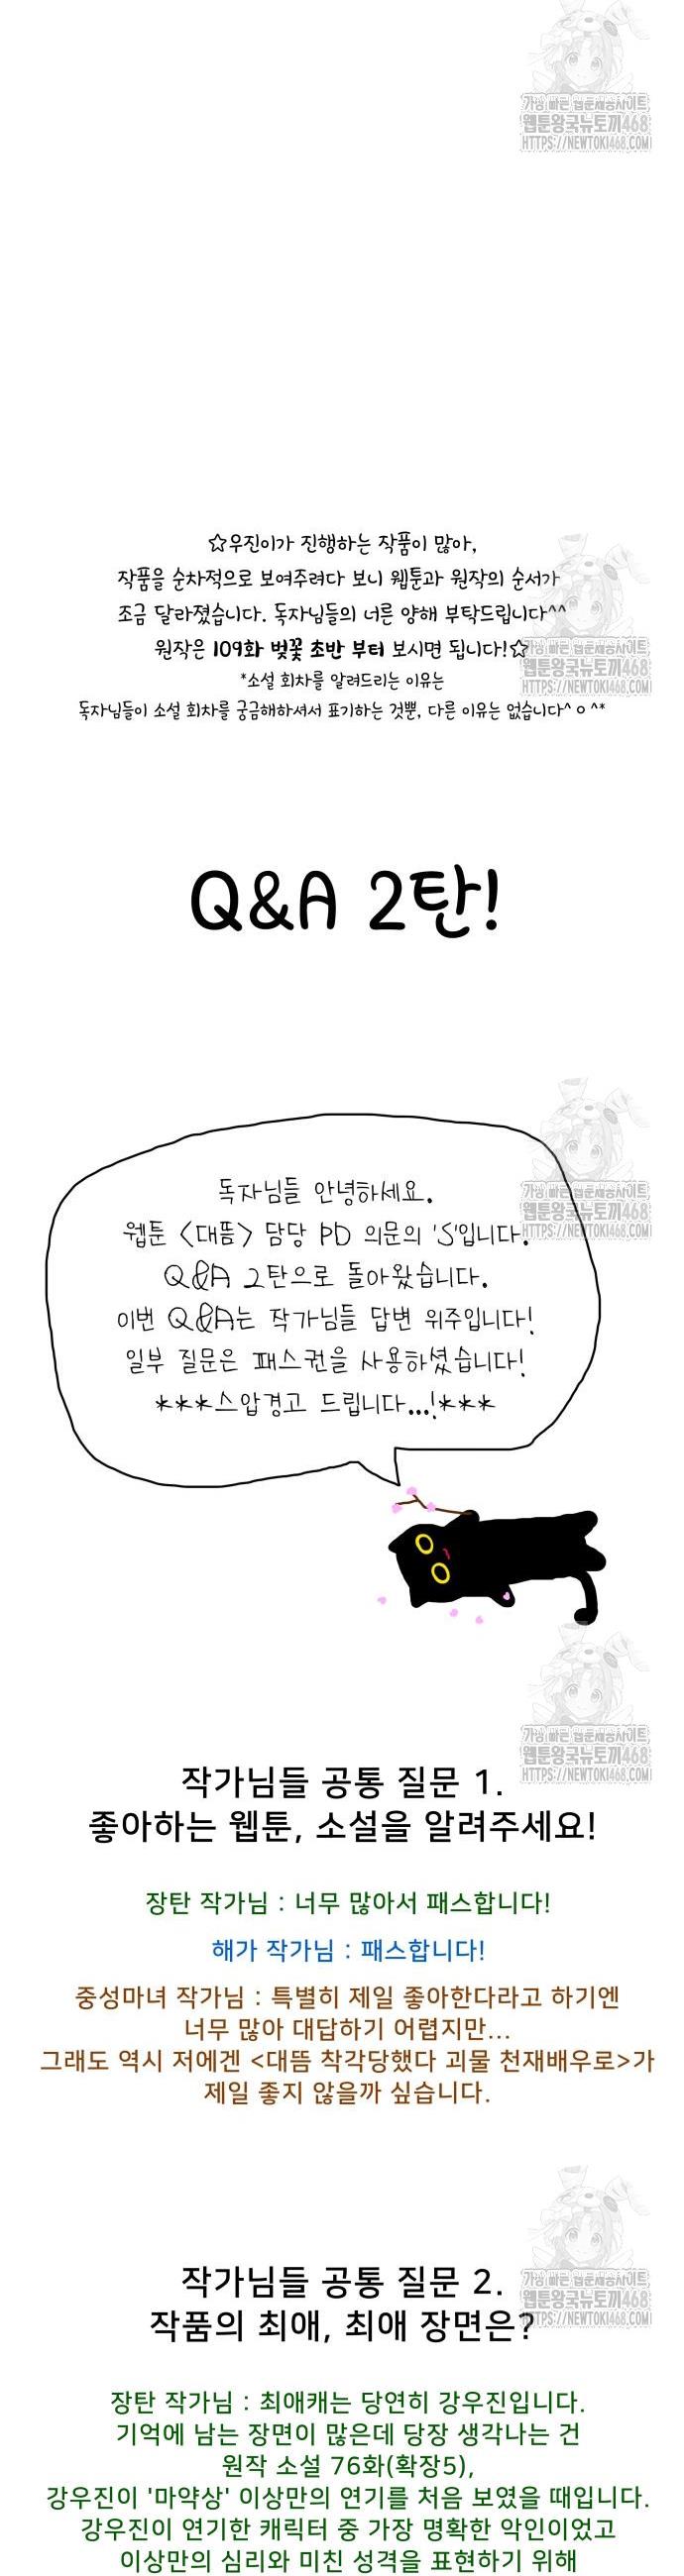 가장 빠른 웹툰제공사이트
웹툰왕국뉴토끼468
HTTPS://NEWTOKI468.COM
☆우진이가 진행하는 작품이 많아,
작품을 순차적으로 보여주려다 보니 웹툰과 원작의 순서가
조금 달라졌습니다. 독자님들의 너른 양해 부탁드립니다^^
원작은 109화 벚꽃 초반 부터 보시면 됩니다!☆
*소설 회차를 알려드리는 이유는
독자님들이 소설 회차를 궁금해하셔서 표기하는 것뿐, 다른 이유는 없습니다^ㅇ^*
가장 빠른 웹툰제공사이트
웹툰왕국뉴토끼468
HTTPS://NEWTOKI468.COM
Q&A 2탄!
독자님들 안녕하세요.
웹툰 <대뜸> 담당 PD 의문의 'S'입니다.
Q&A 2탄으로 돌아왔습니다.
이번 Q&A는 작가님들 답변 위주입니다!
일부 질문은 패스권을 사용하셨습니다!
***스압경고 드립니다...!***
가장 빠른 웹툰제공사이트
웹툰왕국뉴토끼468
HTTPS://NEWTOKI468.COM
가장 빠른 웹툰제공사이트
웹툰왕국뉴토끼468
HTTPS://NEWTOKI468.COM
작가님들 공통 질문 1.
좋아하는 웹툰, 소설을 알려주세요!
장탄 작가님 : 너무 많아서 패스합니다!
해가 작가님 : 패스합니다!
중성마녀 작가님 : 특별히 제일 좋아한다라고 하기엔
너무 많아 대답하기 어렵지만...
그래도 역시 저에겐 <대뜸 착각당했다 괴물 천재배우로>가
제일 좋지 않을까 싶습니다.
가장 빠른 웹툰제공사이트
웹툰왕국뉴토끼468
HTTPS://NEWTOKI468.COM
작가님들 공통 질문 2.
작품의 최애, 최애 장면은?
장탄 작가님 : 최애캐는 당연히 강우진입니다.
기억에 남는 장면이 많은데 당장 생각나는 건
원작 소설 76화(확장5),
강우진이 '마약상' 이상만의 연기를 처음 보였을 때입니다.
강우진이 연기한 캐릭터 중 가장 명확한 악인이었고
이상만의 심리와 미친 성격을 표현하기 위해